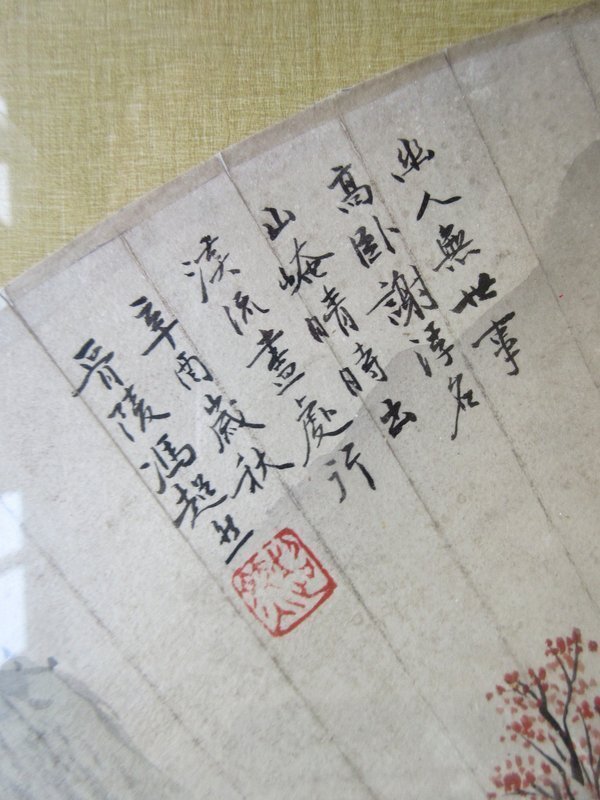 幽人無世事
高卧謝浮名
山崦晴時出
溪流盡處行
辛酉歲秋
晉陵馮超然